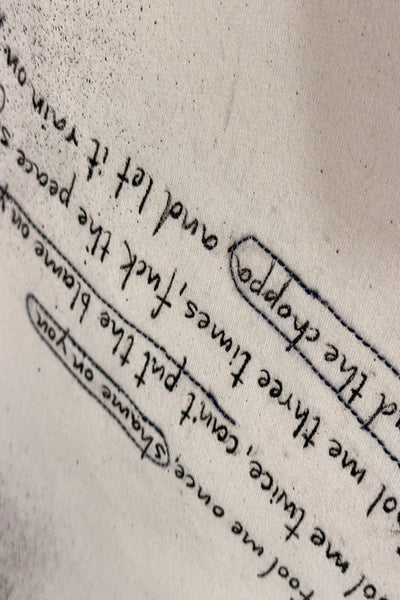 fool me once, shame on you
ol me twice, can't put the blame on y
ool me three times, fuck the peace s
d the choppa and let it rain on